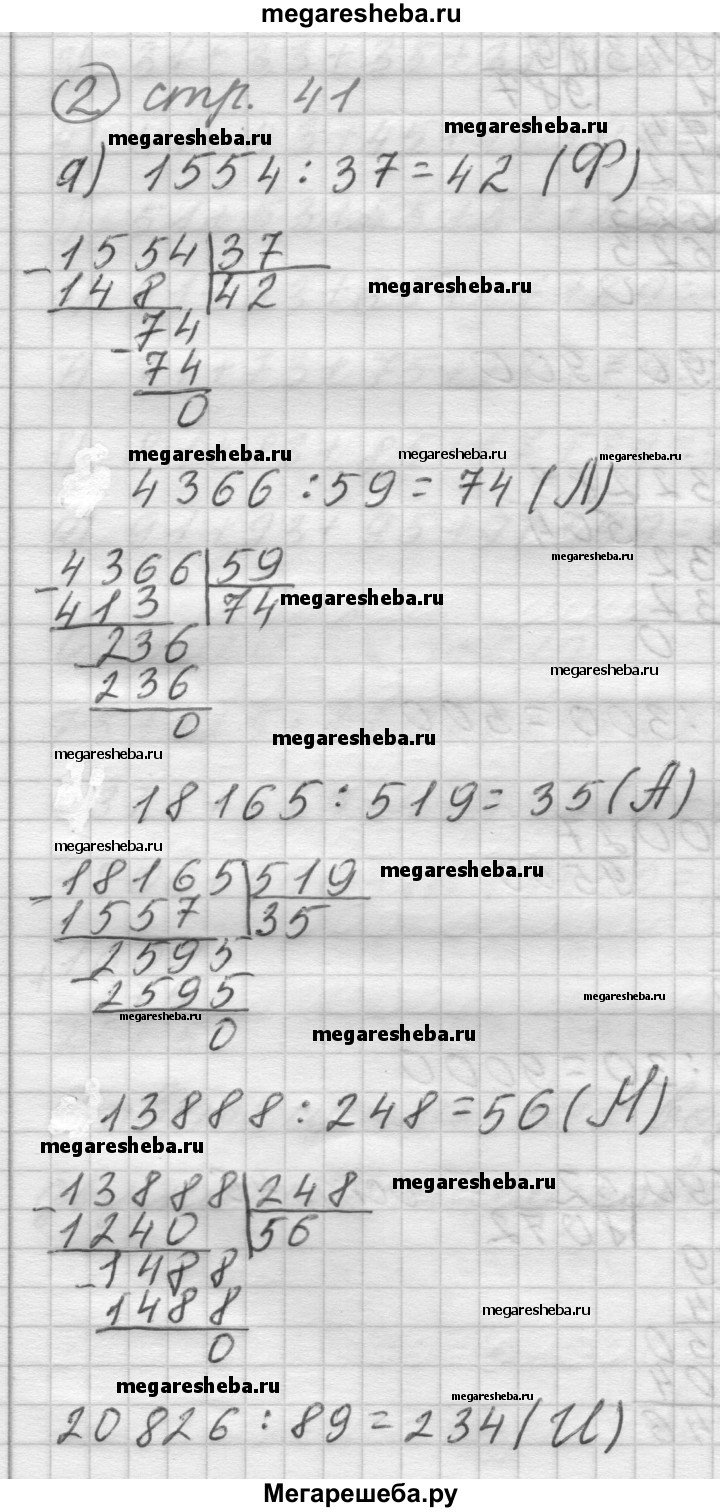 megaresheba.ru
② стр. 41
megaresheba.ru megaresheba.ru
а) 1554 : 37 = 42 (Ф)
- 1554 | 37
148 | 42 megaresheba.ru
- 74
74
0
megaresheba.ru megaresheba.ru megaresheba.ru
4366 : 59 = 74 (Л)
megaresheba.ru
- 4366 | 59
413 | 74 megaresheba.ru
- 236
236 megaresheba.ru
0
megaresheba.ru megaresheba.ru
18165 : 519 = 35 (А)
megaresheba.ru
- 18165 | 519 megaresheba.ru
1557 | 35
- 2595
2595 megaresheba.ru
megaresheba.ru
0 megaresheba.ru
13888 : 248 = 56 (М)
megaresheba.ru
- 13888 | 248 megaresheba.ru
1240 | 56
- 1488
1488 megaresheba.ru
0
megaresheba.ru megaresheba.ru
20826 : 89 = 234 (И)
Мегарешеба.ру